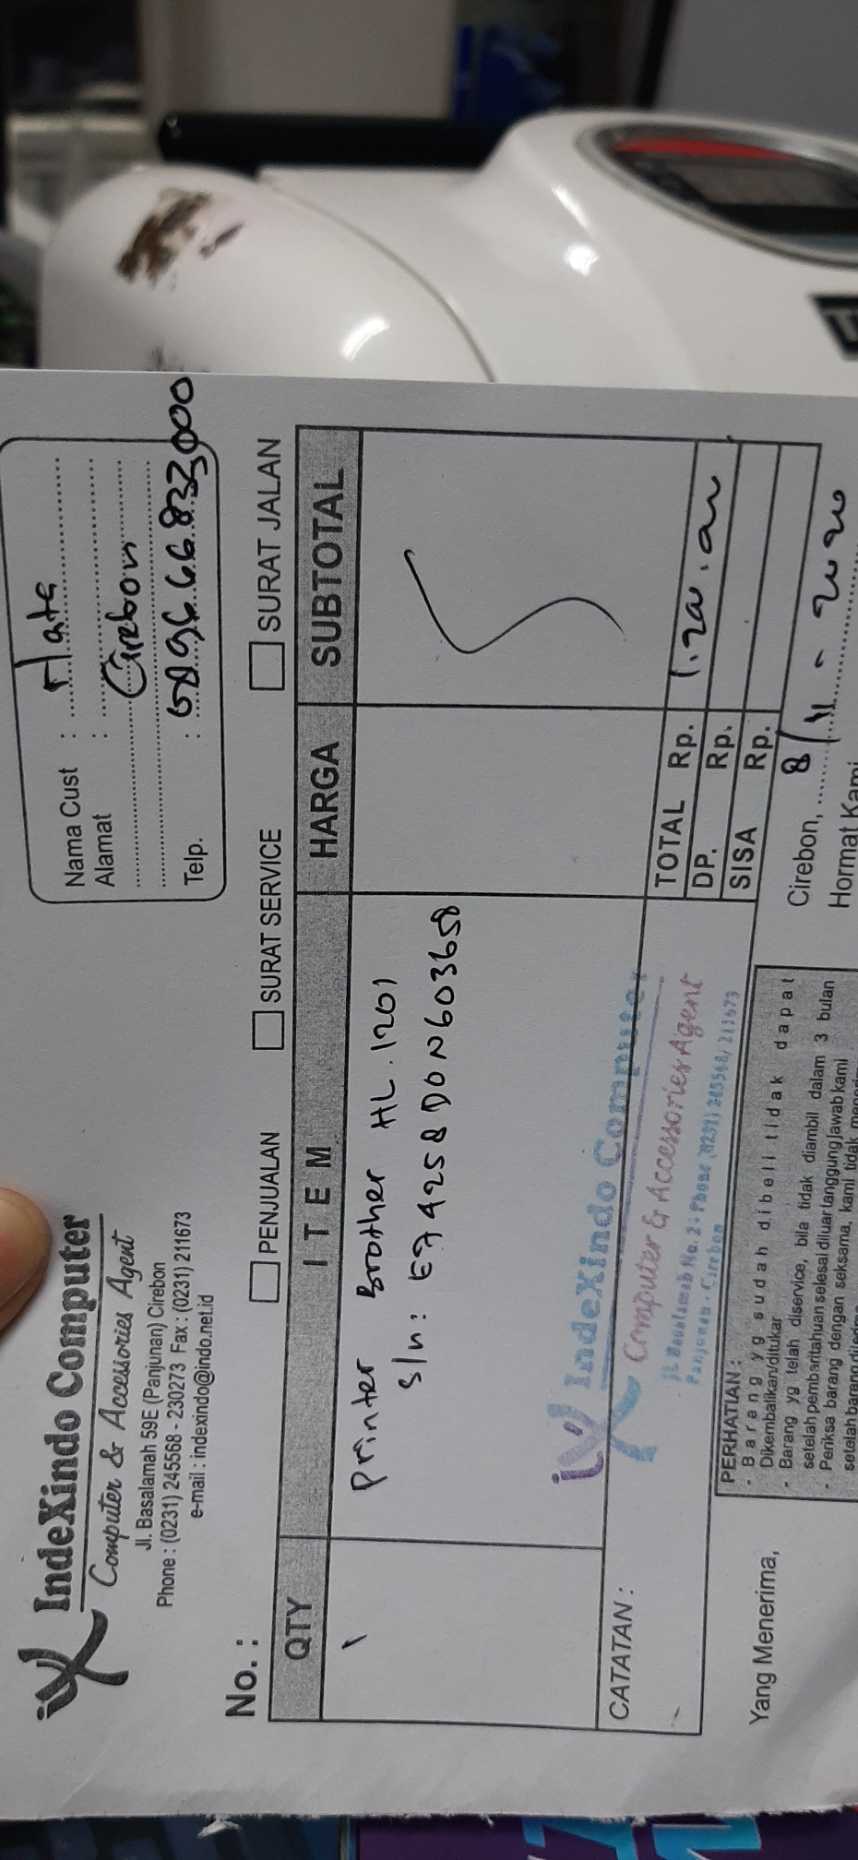 IndeXindo Computer
Computer & Accessories Agent
Jl. Basalamah 59E (Panjunan) Cirebon
Phone : (0231) 245568 - 230273 Fax : (0231) 211673
e-mail : indexindo@indo.net.id
Nama Cust :
Alamat : Cirebon
Telp. :
No. :
PENJUALAN SURAT SERVICE SURAT JALAN
QTY ITEM HARGA SUBTOTAL
1 Printer Brother HL.1201
S/N : E74258D0N603658
IndeXindo Computer
Computer & Accessories Agent
CATATAN :
TOTAL Rp.
DP. Rp.
SISA Rp.
PERHATIAN :
- Barang yg sudah dibeli tidak dapat
Dikembalikan/ditukar
- Barang yg telah diservice, bila tidak diambil dalam 3 bulan
setelah pemberitahuan selesai diluar tanggung jawab kami
- Periksa barang dengan seksama, kami tidak
Cirebon, 8/11 - 2020
Yang Menerima,
Hormat Kami